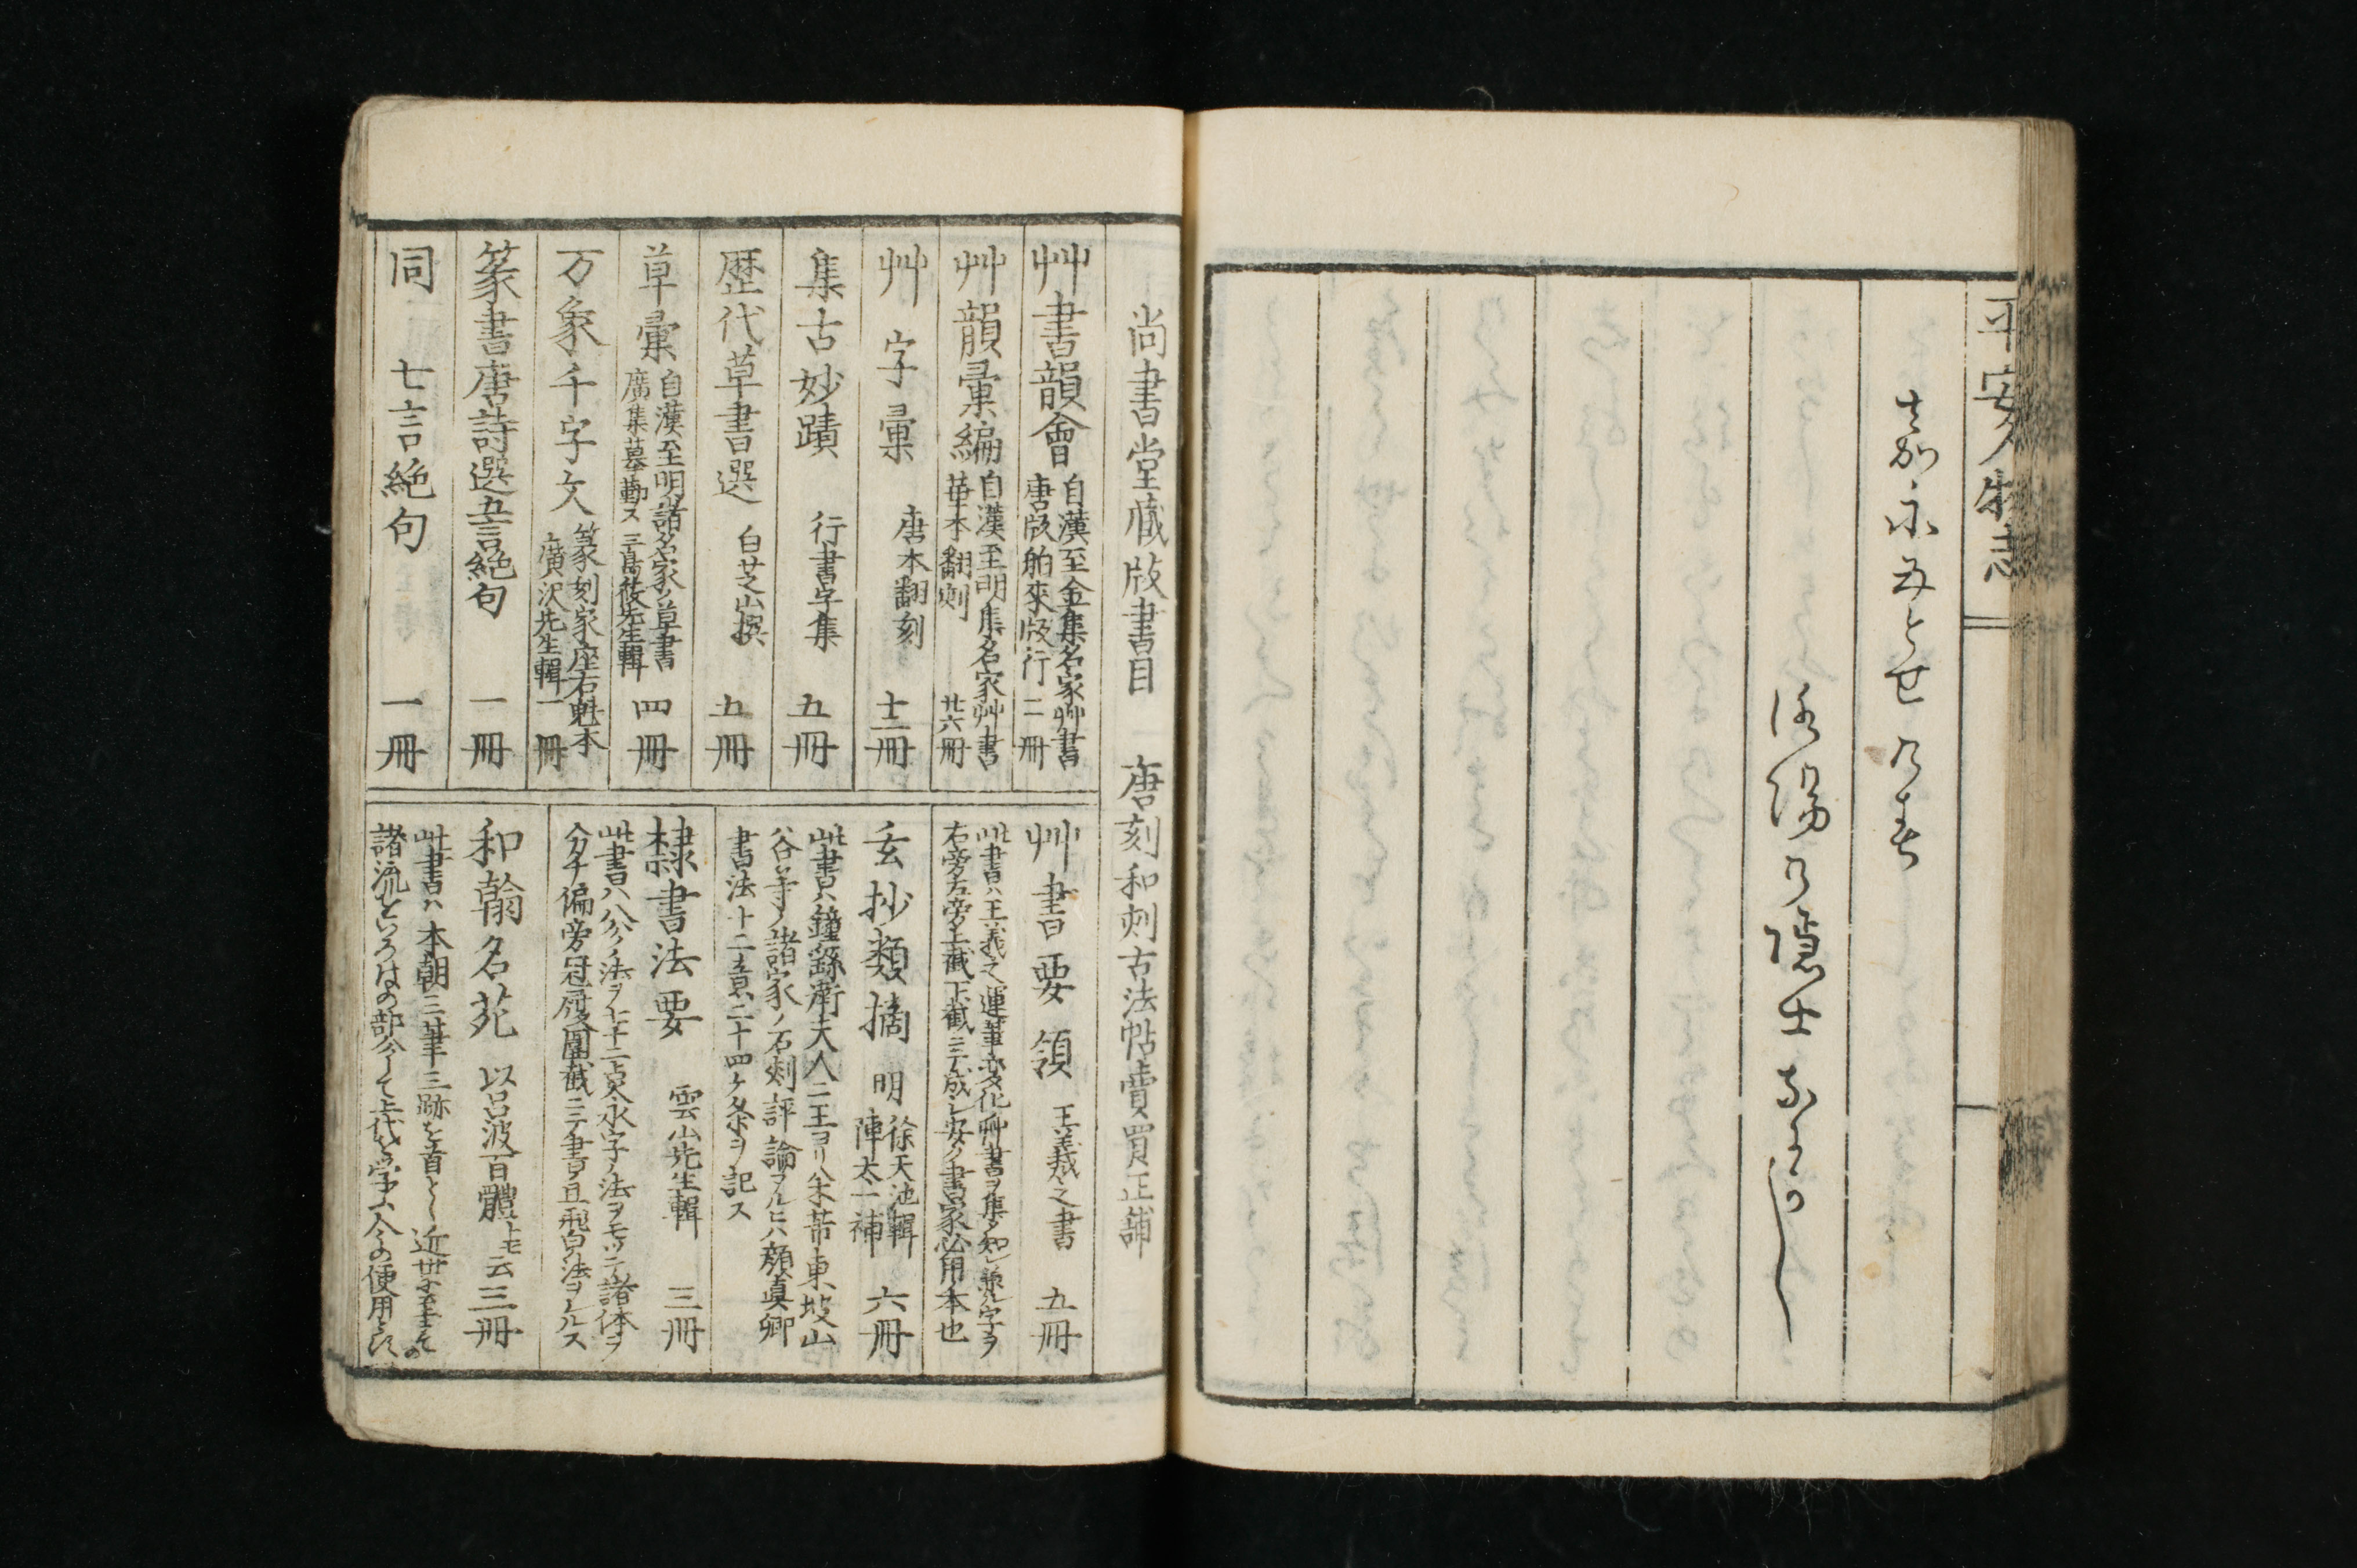 平安人物志
嘉永五とせの春
洛陽の隠士あるかし
尚書堂蔵版書目 唐刻和刻古法帖賣買正舗
艸書韻會 自漢至金集名家艸書 唐版舶來版行 二冊
艸韻彙編 自漢至明集名家艸書 華本翻刻 廿六冊
艸字彙 唐本翻刻 十二冊
集古妙蹟 行書字集 五冊
歴代草書選 白芝山撰 五冊
草彙 自漢至明諸名家ノ草書 廣集摹勒ス 先生輯 四冊
万象千字文 篆刻家座右魁本 廣沢先生輯 一冊
篆書唐詩選五言絶句 一冊
同 七言絶句 一冊
艸書要領 王羲之書 五冊
此書ハ王羲之運筆変化艸書ヲ集メ知レ難ル字ヲ
右旁左旁上截下截ニテ成レ安ク書家必用ノ本也
玄抄類摘 明 徐天池輯 陳太一補 六冊
此書ハ鐘繇衛夫人二王ヨリ朱芾東坡山
谷等ノ諸家ノ石刻評論ヲノルヒハ顔真卿
書法十二意二十四ケ条ヲ記ス
隷書法要 雲山先生輯 三冊
此書ハ八分ノ法ヲ七十二点永字ノ法ヲモツテ諸体ヲ
分チ偏旁冠履圍截ニテ書ヲ且飛白ノ法ヲシルス
和翰名苑 以呂波百體トモ云 三冊
此書ハ本朝三筆三跡を首とし近世に至まての
諸流をいろはの部分して上代を学ふ今の便用